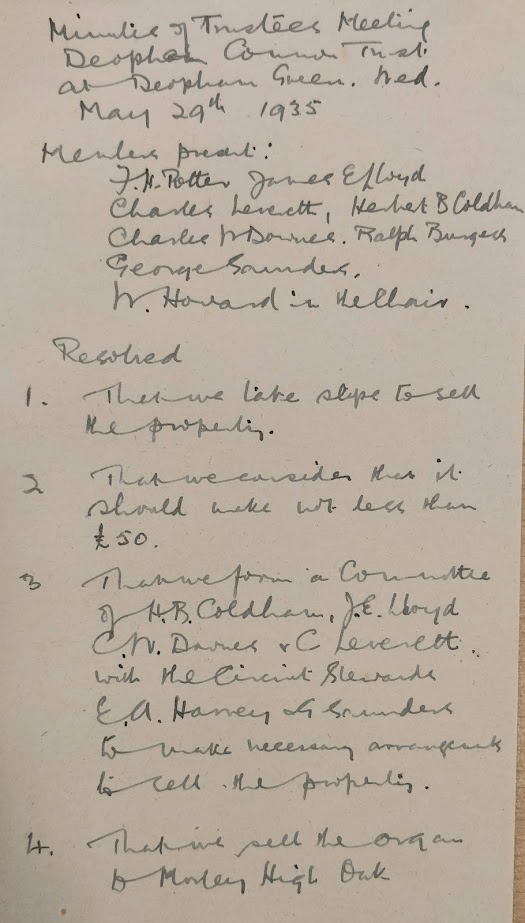 Minutes of Trustees Meeting
Deopham Common Trust
at Deopham Green. Wed.
May 29th 1935
Members present:
F.H. Potter James E Lloyd
Charles Leverett, Herbert B Coldham
Charles W Downes. Ralph Burgess
George Saunders.
W. Howard in the Chair.
Resolved
1. That we take steps to sell
the property.
2 That we consider that it
should make not less than
£50.
3 That we form a Committee
of H.B. Coldham, J.E. Lloyd
C.W. Downes & C Leverett.
with the Circuit Stewards
E.A. Harvey & G Saunders
to make necessary arrangements
to sell the property.
4. That we sell the organ
to Morley High Oak